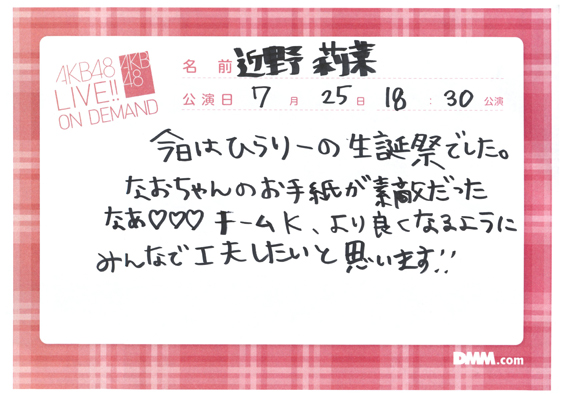 AKB48
LIVE!!
ON DEMAND
AKB
48
名前 近野 莉菜
公演日 7月 25日 18:30 公演
今日はひらりーの生誕祭でした。
なおちゃんのお手紙が素敵だった
なあ♡♡♡ チームK、より良くなるように
みんなで工夫したいと思います!!
DMM.com